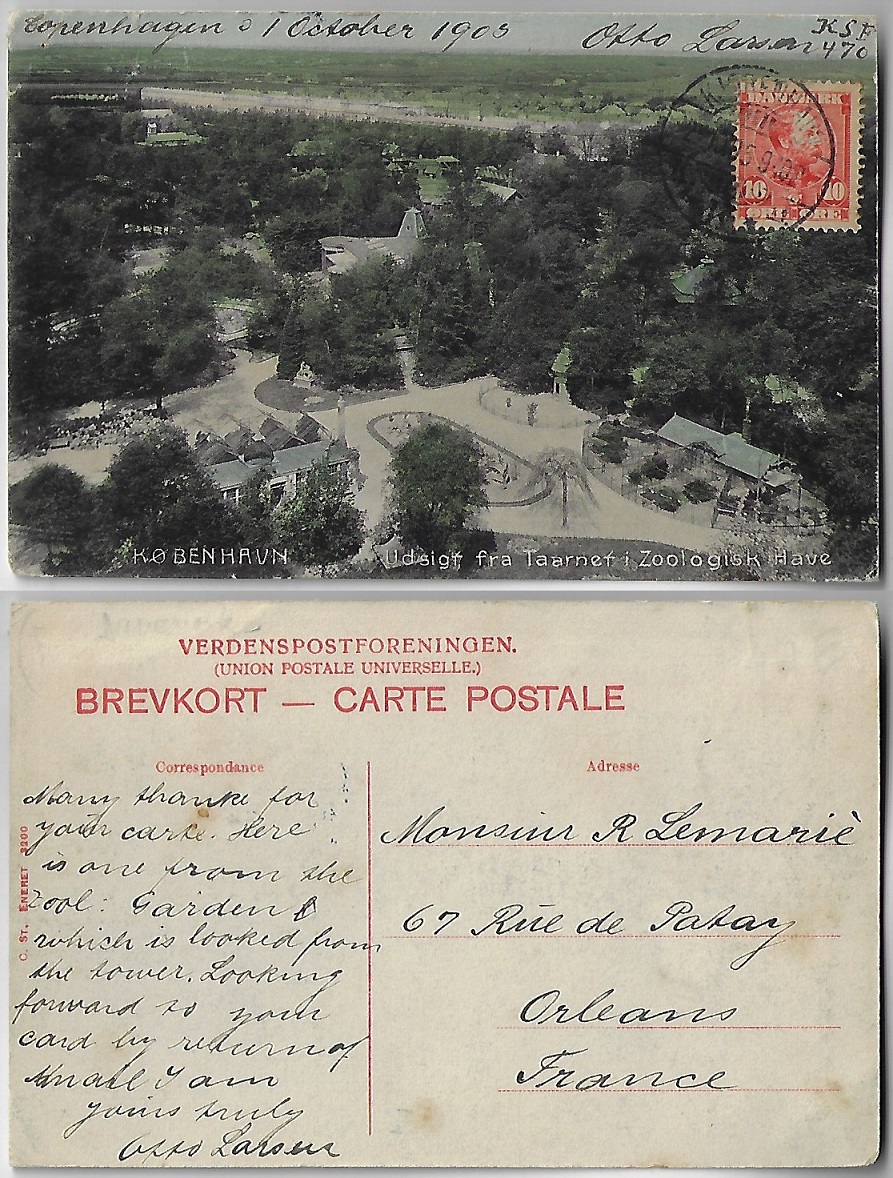 Copenhagen d 1 October 1905
Otto Larsen
KSF
470
DANMARK
10 10
ØRE ØRE
KØBENHAVN
Udsigt fra Taarnet i Zoologisk Have
VERDENSPOSTFORENINGEN.
(UNION POSTALE UNIVERSELLE.)
BREVKORT — CARTE POSTALE
Correspondance
Many thanks for
your carte. Here
is one from the
Zool: Garden
which is looked from
the tower. Looking
forward to your
card by return of
mail I am
yours truly
Otto Larsen
C. ST. ENERET 3200
Adresse
Monsiur R Lemariè
67 Rue de Patay
Orleans
France